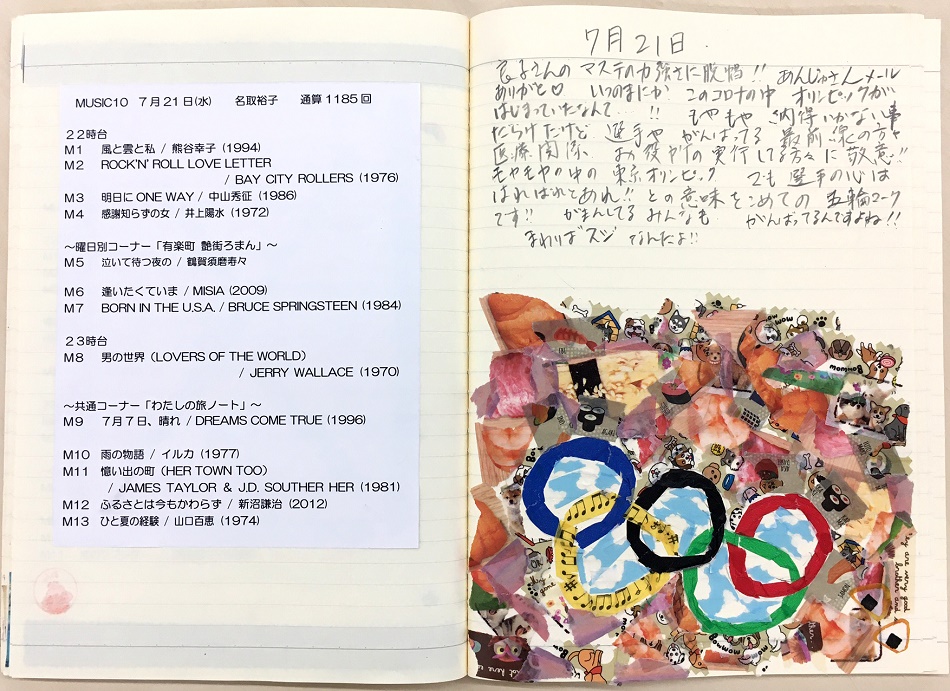 MUSIC10　7月21日(水)　名取裕子　通算1185回
22時台
M1　風と雲と私 / 熊谷幸子 (1994)
M2　ROCK'N' ROLL LOVE LETTER
/ BAY CITY ROLLERS (1976)
M3　明日にONE WAY / 中山秀征 (1986)
M4　感謝知らずの女 / 井上陽水 (1972)
～曜日別コーナー「有楽町 艶街ろまん」～
M5　泣いて待つ夜の / 鶴賀須磨寿々
M6　逢いたくていま / MISIA (2009)
M7　BORN IN THE U.S.A. / BRUCE SPRINGSTEEN (1984)
23時台
M8　男の世界 (LOVERS OF THE WORLD)
/ JERRY WALLACE (1970)
～共通コーナー「わたしの旅ノート」～
M9　7月7日、晴れ / DREAMS COME TRUE (1996)
M10　雨の物語 / イルカ (1977)
M11　憶い出の町 (HER TOWN TOO)
/ JAMES TAYLOR & J.D. SOUTHER HER (1981)
M12　ふるさとは今もかわらず / 新沼謙治 (2012)
M13　ひと夏の経験 / 山口百恵 (1974)
7月21日.
良子さんの マステの力強さに脱帽!! あんじゅさんメール
ありがと♡ いつのまにか このコロナの中 オリンピックが
はじまっていたなんて…!! もやもや 納得いかない事
だらけだけど 選手や がんばってる 最前線の方々
医療関係 お役所の実行してる方々に敬意!!
もやもやの中の 東京オリンピック でも選手の心は
はればれとあれ!! との意味をこめての 五輪マーク
です!! がまんしてる みんなも がんばってるんですよね!!
まわりはスジ なんだよ!!
mom
Bommom
they are very good
brother and